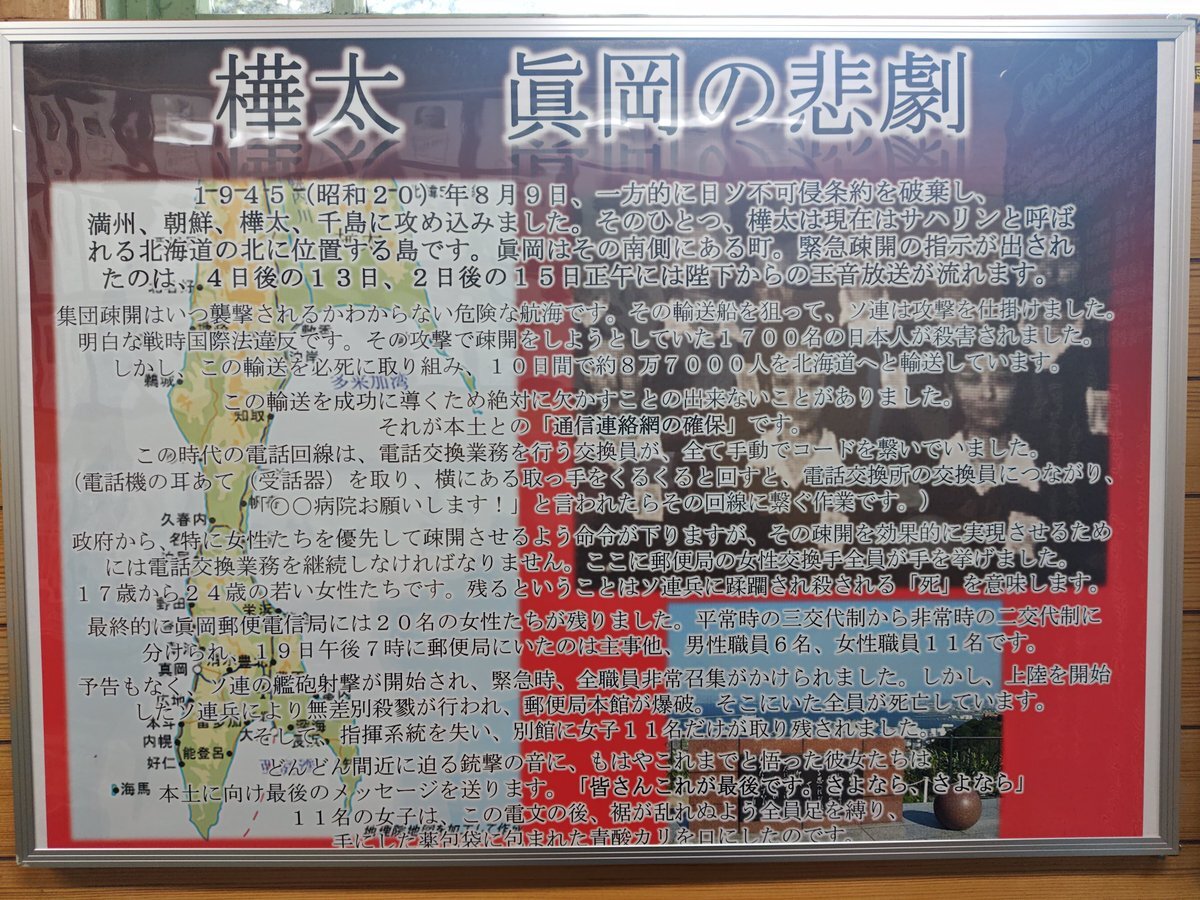 樺太　眞岡の悲劇
１９４５（昭和２０）年８月９日、一方的に日ソ不可侵条約を破棄し、
満州、朝鮮、樺太、千島に攻め込みました。そのひとつ、樺太は現在はサハリンと呼ば
れる北海道の北に位置する島です。眞岡はその南側にある町。緊急疎開の指示が出され
たのは、４日後の１３日、２日後の１５日正午には陛下からの玉音放送が流れます。
集団疎開はいつ襲撃されるかわからない危険な航海です。その輸送船を狙って、ソ連は攻撃を仕掛けました。
明白な戦時国際法違反です。その攻撃で疎開をしようとしていた１７００名の日本人が殺害されました。
しかし、この輸送を必死に取り組み、１０日間で約８万７０００人を北海道へと輸送しています。
この輸送を成功に導くため絶対に欠かすことの出来ないことがありました。
それが本土との「通信連絡網の確保」です。
この時代の電話回線は、電話交換業務を行う交換員が、全て手動でコードを繋いでいました。
（電話機の耳あて（受話器）を取り、横にある取っ手をくるくると回すと、電話交換所の交換員につながり、
「○○病院お願いします！」と言われたらその回線に繋ぐ作業です。）
政府から、特に女性たちを優先して疎開させるよう命令が下りますが、その疎開を効果的に実現させるため
には電話交換業務を継続しなければなりません。ここに郵便局の女性交換手全員が手を挙げました。
１７歳から２４歳の若い女性たちです。残るということはソ連兵に蹂躙され殺される「死」を意味します。
最終的に眞岡郵便電信局には２０名の女性たちが残りました。平常時の三交代制から非常時の二交代制に
分けられ、１９日午後７時に郵便局にいたのは主事他、男性職員６名、女性職員１１名です。
予告もなく、ソ連の艦砲射撃が開始され、緊急時、全職員非常召集がかけられました。しかし、上陸を開始
したソ連兵により無差別殺戮が行われ、郵便局本館が爆破。そこにいた全員が死亡しています。
そして、指揮系統を失い、別館に女子１１名だけが取り残されました。
どんどん間近に迫る銃撃の音に、もはやこれまでと悟った彼女たちは
本土に向け最後のメッセージを送ります。「皆さんこれが最後です。さよなら、さよなら」
１１名の女子は、この電文の後、裾が乱れぬよう全員足を縛り、
手にした薬包袋に包まれた青酸カリを口にしたのです。
鵜城
多来加湾
知取
久春内
野田
栄浜
真岡
豊北
本斗
内幌
好仁
能登呂
海馬